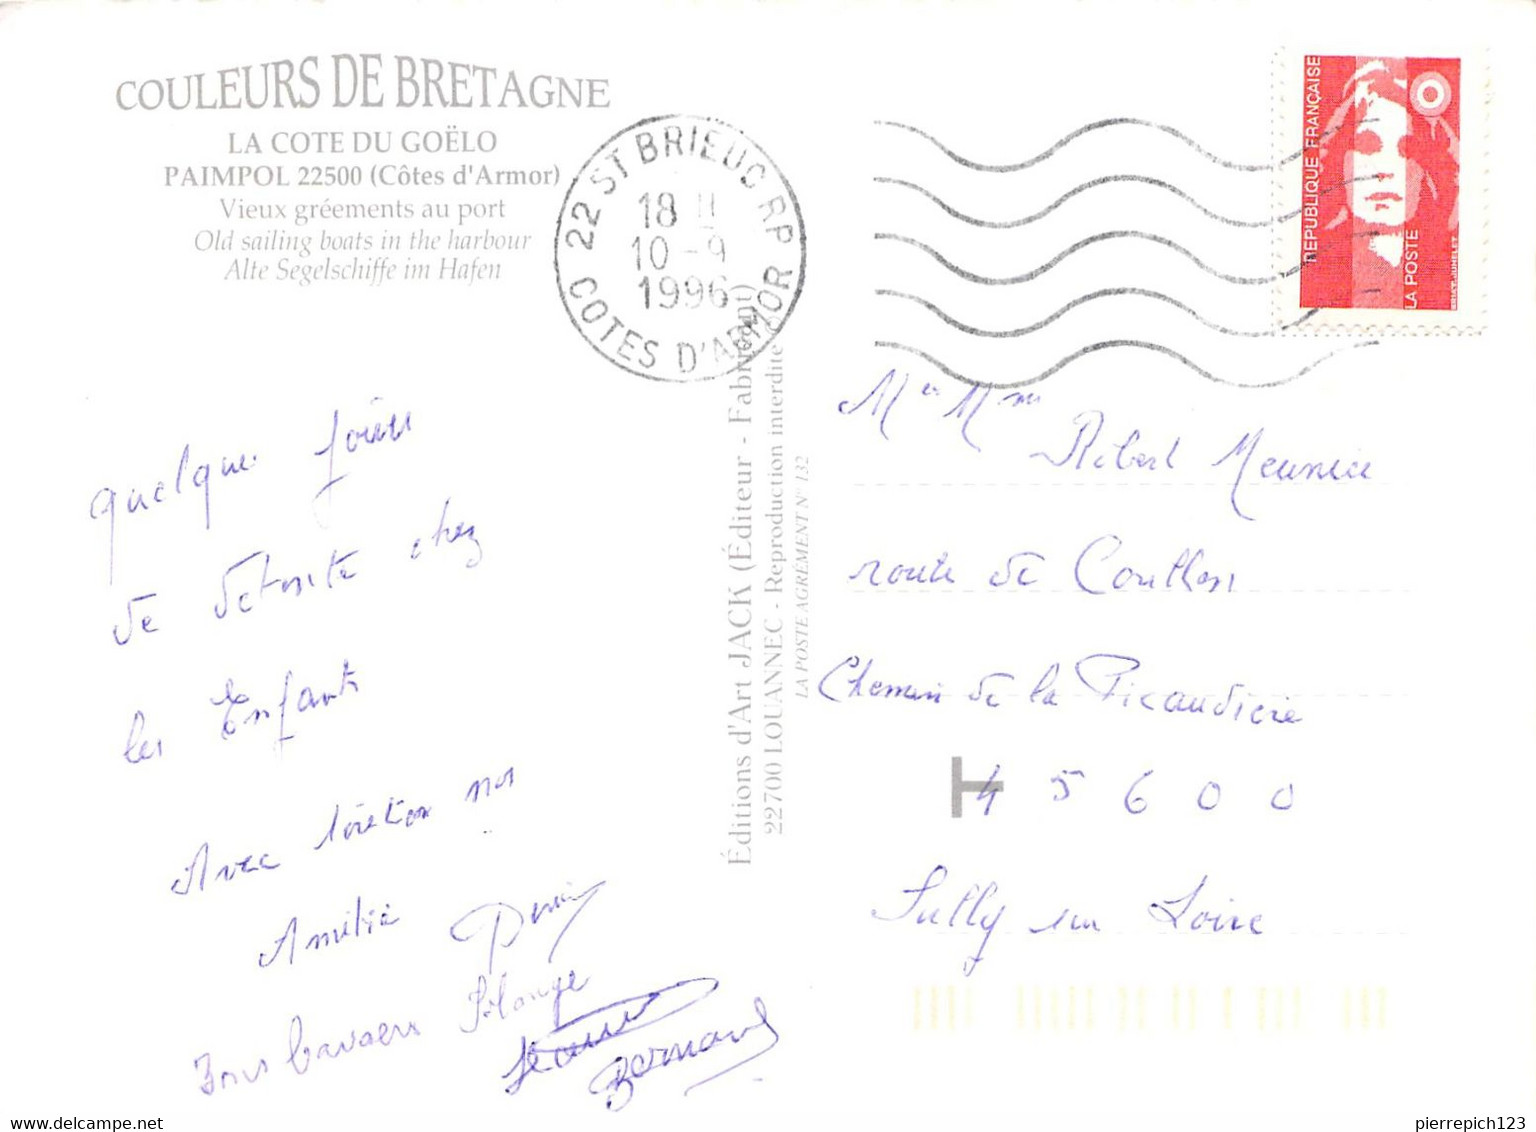 COULEURS DE BRETAGNE
LA COTE DU GOËLO
PAIMPOL 22500 (Côtes d'Armor)
Vieux gréements au port
Old sailing boats in the harbour
Alte Segelschiffe im Hafen
22 ST BRIEUC RP
18 H
10 -9
1996
COTES D'ARMOR
REPUBLIQUE FRANÇAISE
LA POSTE
BRIAT-JUMELET
quelque jours
de détente chez
les Enfants
Avec toute nos
Amitié
Solange
Bernard
Éditions d'Art JACK (Éditeur - Fabricant)
22700 LOUANNEC - Reproduction interdite
LA POSTE AGRÉMENT N° 132
Mr Mme
Robert Meunier
route de Coullon
Chemin de la Picaudière
45600
Sully sur Loire
pierrepich123